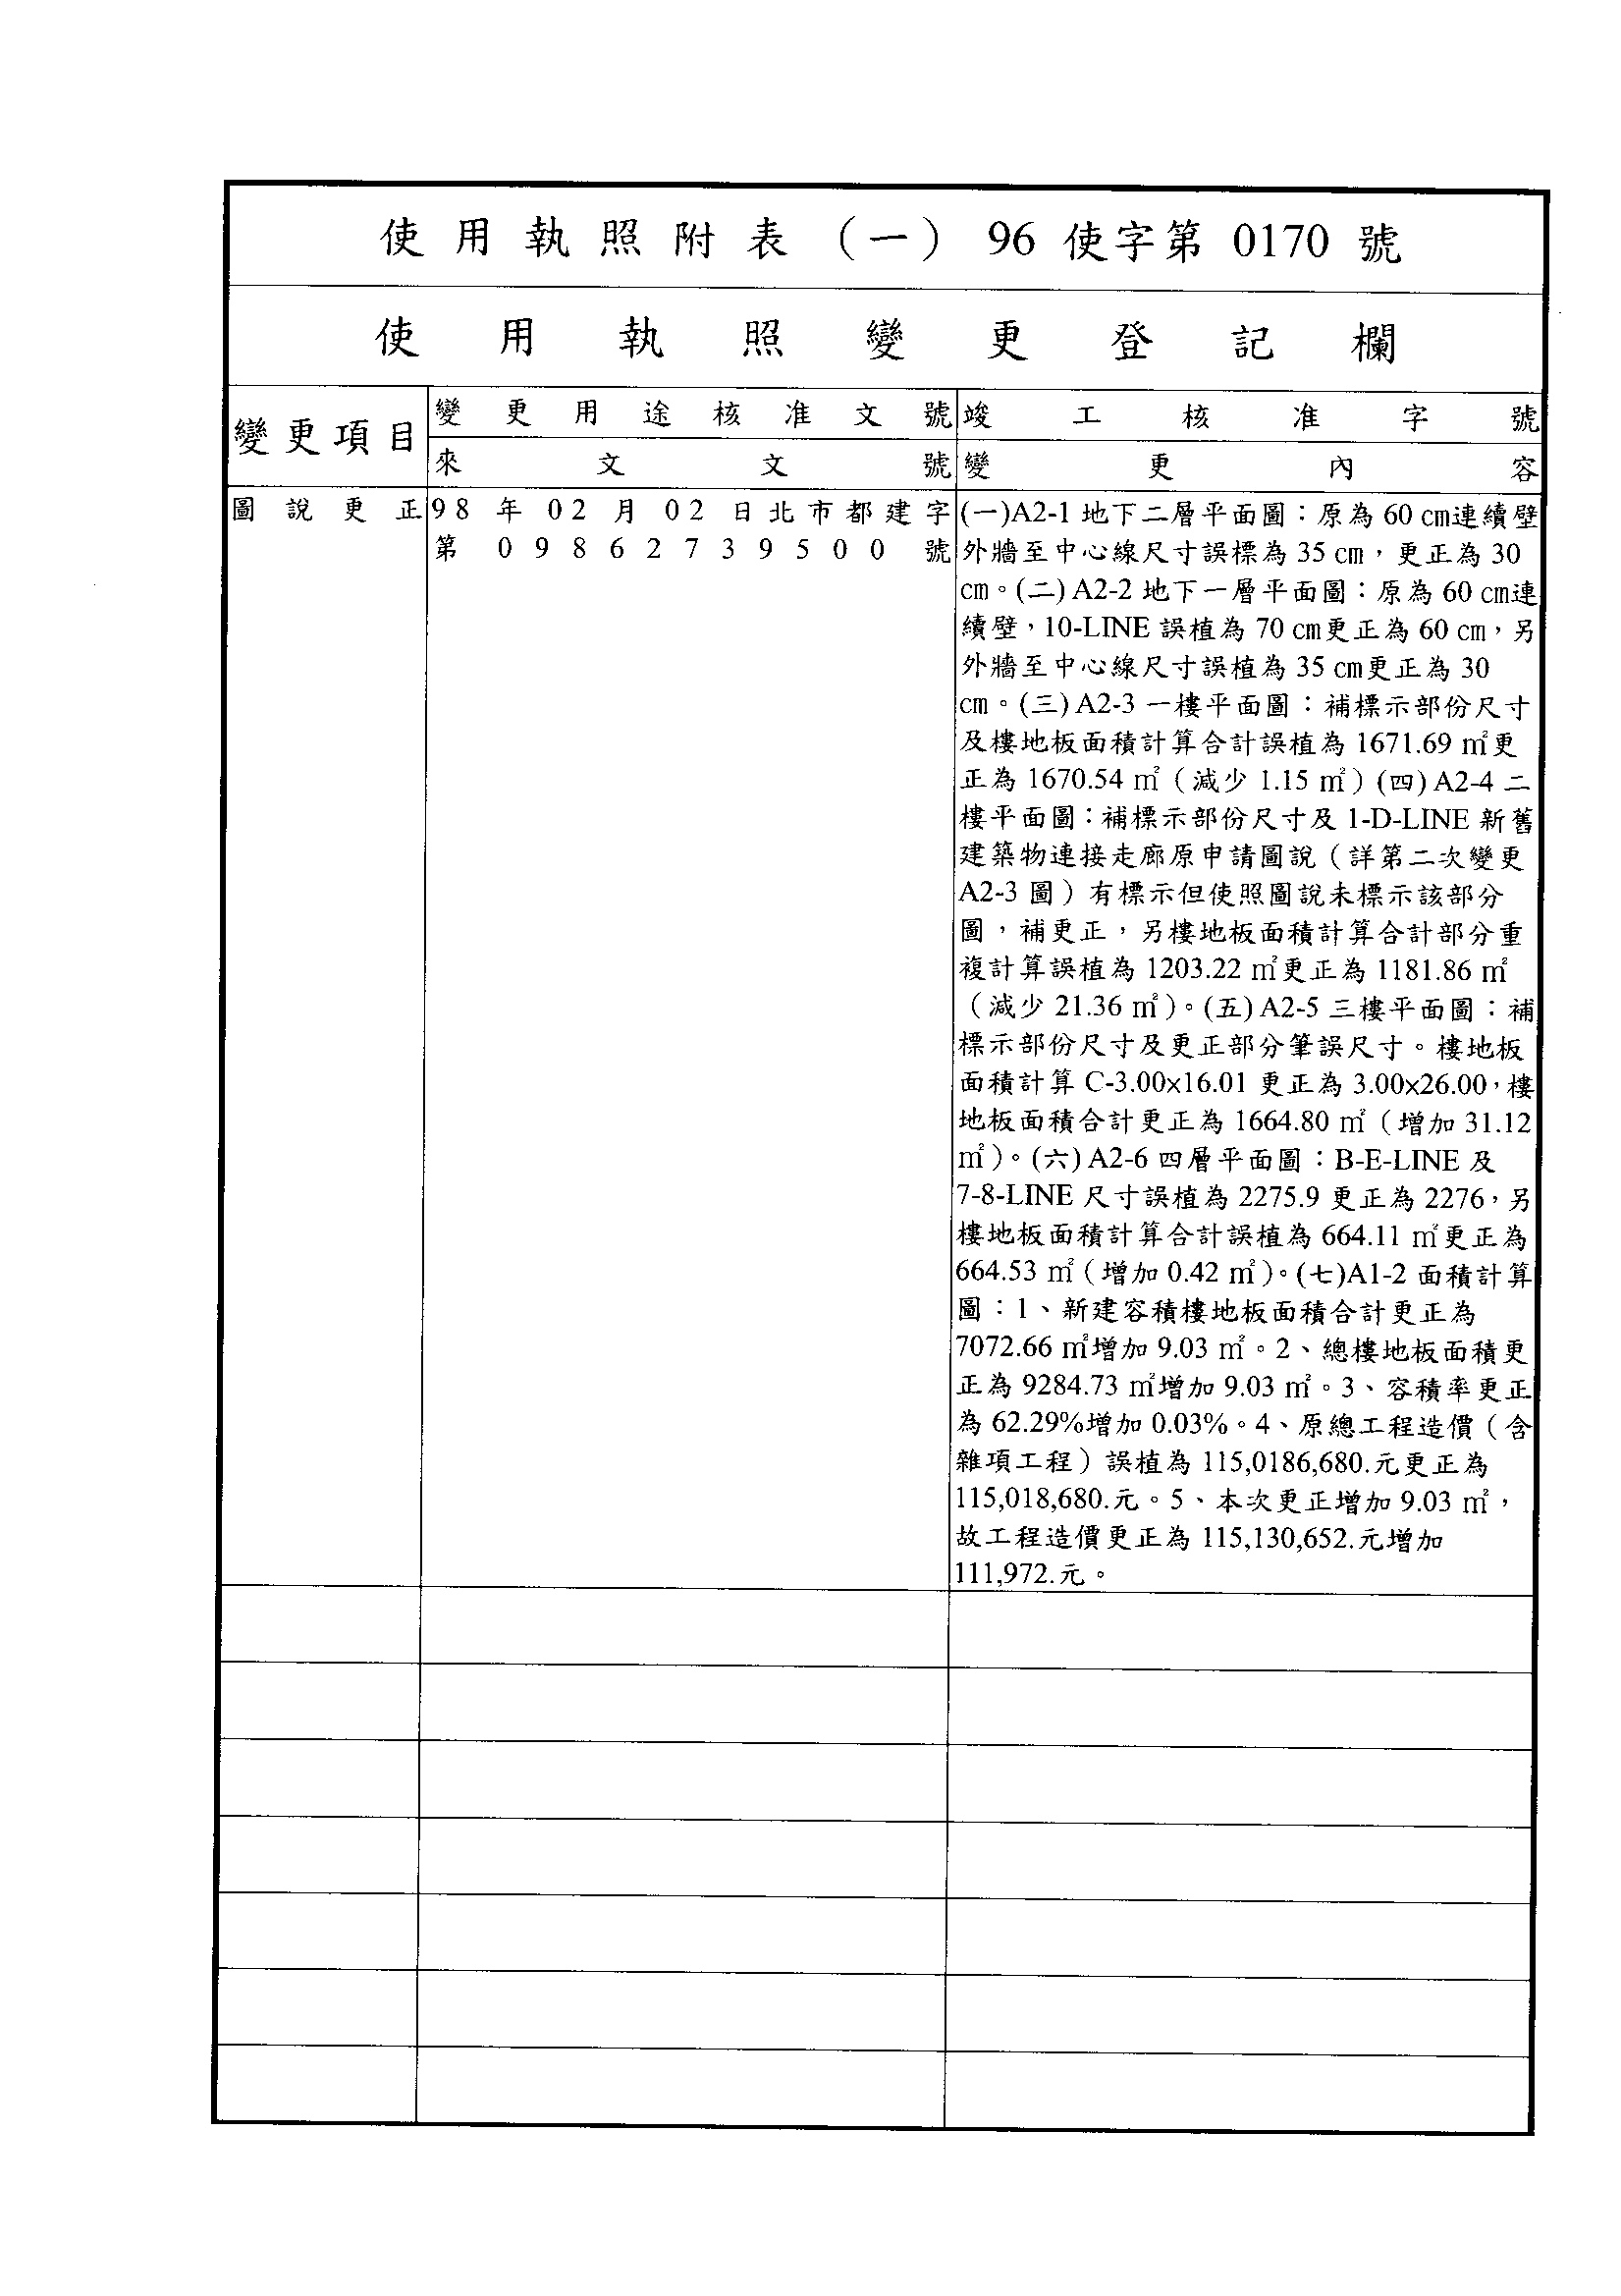 使用執照附表（一）96 使字第 0170 號
使用執照變更登記欄
變更項目
變更用途核准文號
竣工核准字號
來文文號
變更內容
圖說更正
98 年 02 月 02 日北市都建字
第 09862739500 號
(一)A2-1 地下二層平面圖：原為 60 ㎝連續壁
外牆至中心線尺寸誤標為 35 ㎝，更正為 30
㎝。(二) A2-2 地下一層平面圖：原為 60 ㎝連
續壁，10-LINE 誤植為 70 ㎝更正為 60 ㎝，另
外牆至中心線尺寸誤植為 35 ㎝更正為 30
㎝。(三) A2-3 一樓平面圖：補標示部份尺寸
及樓地板面積計算合計誤植為 1671.69 ㎡更
正為 1670.54 ㎡（減少 1.15 ㎡）(四) A2-4 二
樓平面圖：補標示部份尺寸及 1-D-LINE 新舊
建築物連接走廊原申請圖說（詳第二次變更
A2-3 圖）有標示但使照圖說未標示該部分
圖，補更正，另樓地板面積計算合計部分重
複計算誤植為 1203.22 ㎡更正為 1181.86 ㎡
（減少 21.36 ㎡）。(五) A2-5 三樓平面圖：補
標示部份尺寸及更正部分筆誤尺寸。樓地板
面積計算 C-3.00x16.01 更正為 3.00x26.00，樓
地板面積合計更正為 1664.80 ㎡（增加 31.12
㎡）。(六) A2-6 四層平面圖：B-E-LINE 及
7-8-LINE 尺寸誤植為 2275.9 更正為 2276，另
樓地板面積計算合計誤植為 664.11 ㎡更正為
664.53 ㎡（增加 0.42 ㎡）。(七)A1-2 面積計算
圖：1、新建容積樓地板面積合計更正為
7072.66 ㎡增加 9.03 ㎡。2、總樓地板面積更
正為 9284.73 ㎡增加 9.03 ㎡。3、容積率更正
為 62.29%增加 0.03%。4、原總工程造價（含
雜項工程）誤植為 115,0186,680.元更正為
115,018,680.元。5、本次更正增加 9.03 ㎡，
故工程造價更正為 115,130,652.元增加
111,972.元。